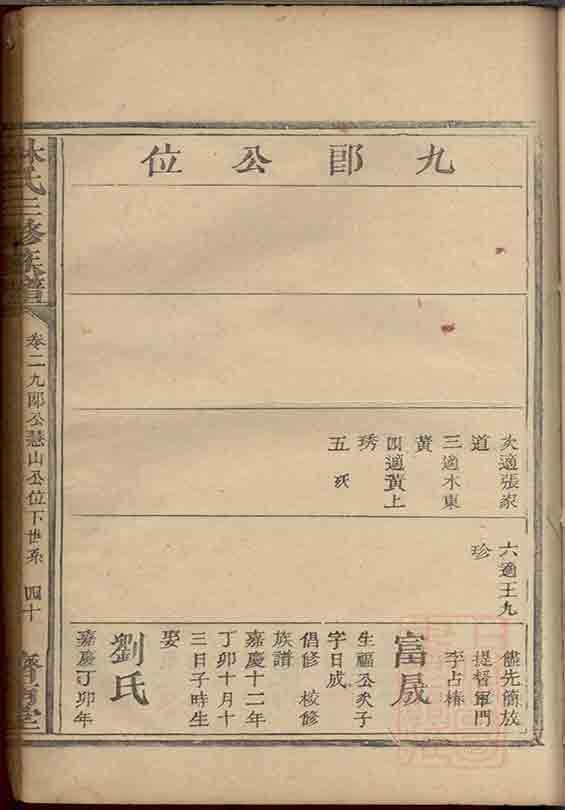 九郎公位
次適張家
道
三適木東
黃
四適黃上
琇
五 殀
六適王九
珍
熊先簡放
提督軍門
李占椿
富晟
生福公次子
字日成
倡修 校修
族譜
嘉慶十二年
丁卯十月十
三日子時生
娶
劉氏
嘉慶丁卯年
林氏三修族譜
卷二九郎公慧山公位下世系 四十